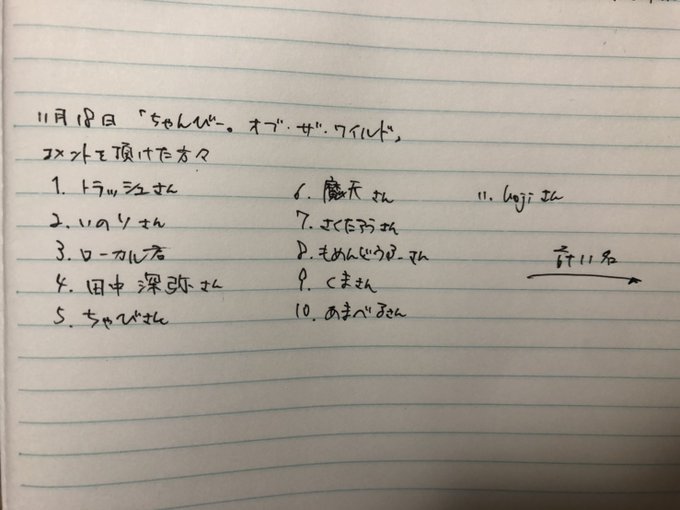 11月18日 「ちゃんびー。オブ・ザ・ワイルド」
コメントを頂けた方々
1. トラッシュさん
2. いのりさん
3. ローカル君
4. 田中 深弥さん
5. ちゃびさん
6. 魔天さん
7. さくたろうさん
8. もめんどうふーさん
9. くまさん
10. あまべるさん
11. kojiさん
計11名